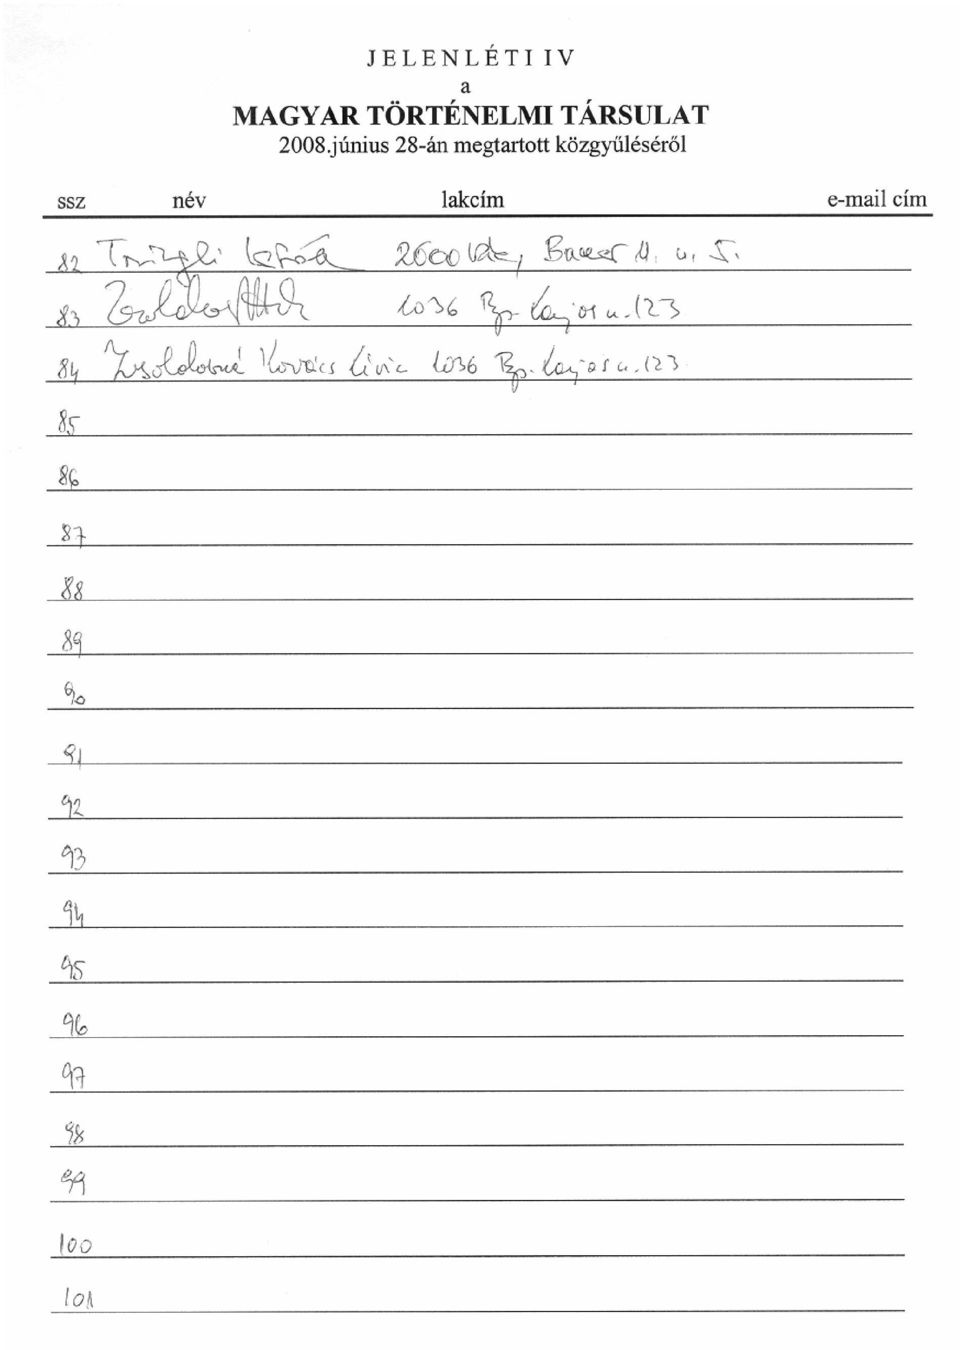 JELENLÉTI IV
a
MAGYAR TÖRTÉNELMI TÁRSULAT
2008.június 28-án megtartott közgyűléséről
ssz név lakcím e-mail cím
82 Trizgli István 2600 Vác, u. 5.
83 Attila 1036 Bp. Lajos u. 123
84 Zsoldosné Kovács Lívia 1036 Bp. Lajos u. 123
85
86
87
88
89
90
91
92
93
94
95
96
97
98
99
100
101